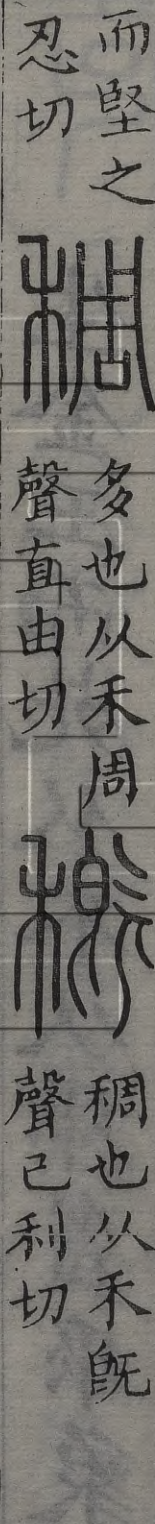 而堅之
忍切
稠
多也从禾周
聲直由切
穊
稠也从禾旣
聲己利切